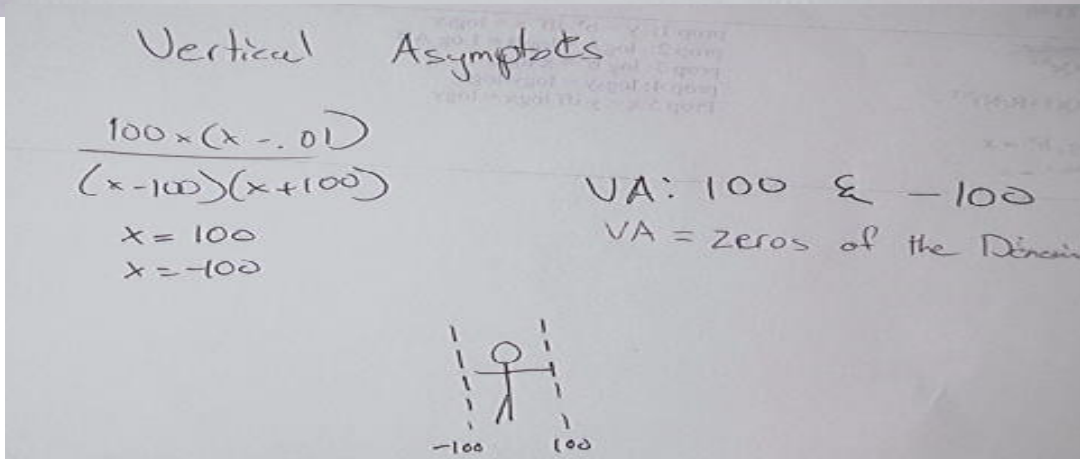 Vertical Asymptots
100x(x-.01)
(x-100)(x+100)
x = 100
x = -100
VA: 100 & -100
VA = zeros of the
-100 100